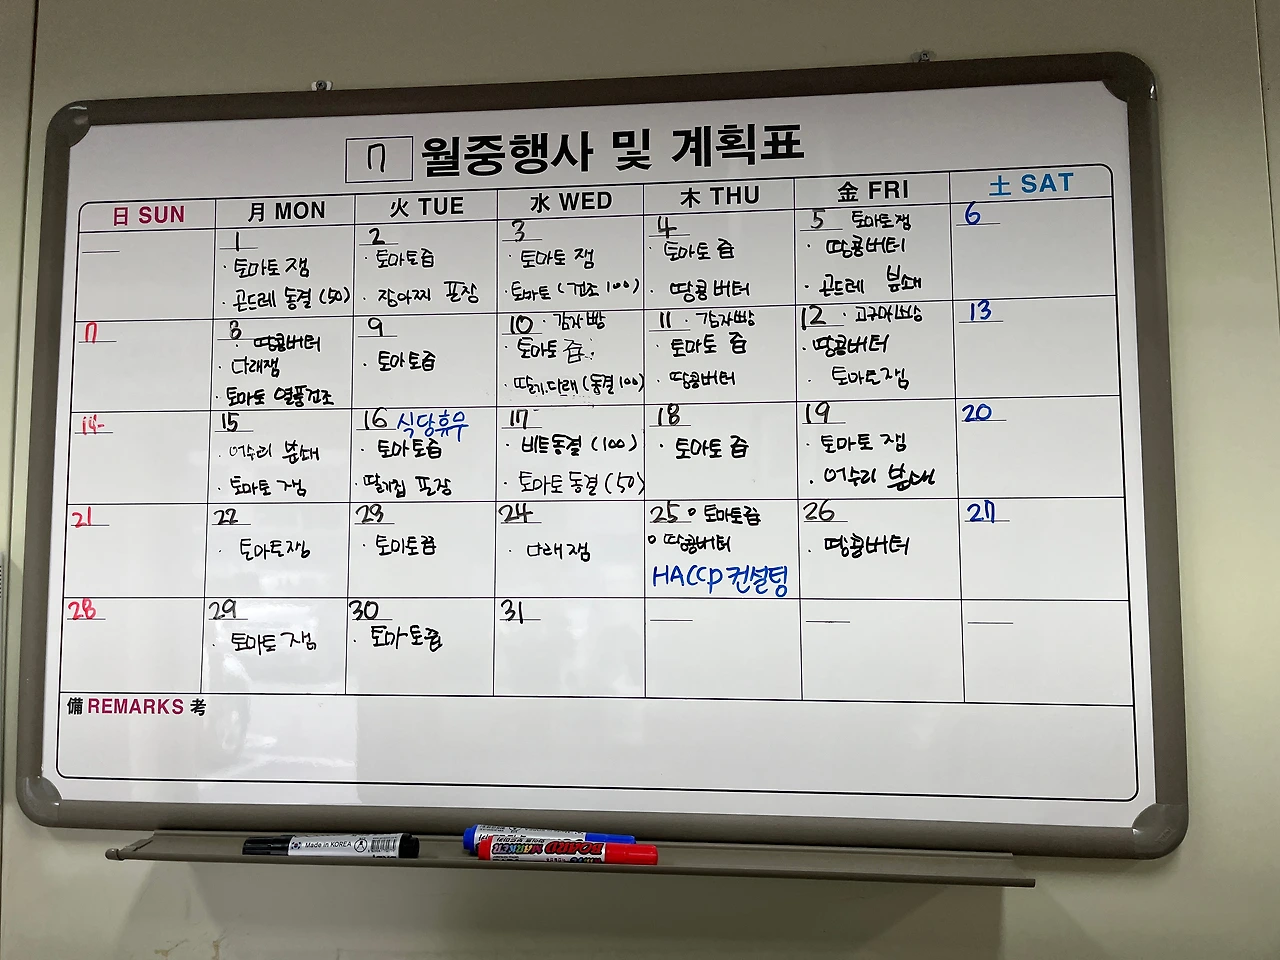 7 월중행사 및 계획표
日 SUN 月 MON 火 TUE 水 WED 木 THU 金 FRI 土 SAT
1
· 토마토 잼
· 곤드레 동결 (50)
2
· 토마토즙
· 장아찌 포장
3
· 토마토 잼
· 토마토 (건조 100)
4
· 토마토 즙
· 땅콩버터
5 토마토잼
· 땅콩버터
· 곤드레 분쇄
6
7
8
· 땅콩버터
· 다래잼
· 토마토 열풍건조
9
· 토마토즙
10 · 감자빵
· 토마토 즙
· 딸기,다래 (동결 100)
11 · 감자빵
· 토마토 즙
· 땅콩버터
12 · 고구마빵
· 땅콩버터
· 토마토잼
13
14
15
· 어수리 분쇄
· 토마토 잼
16 식당휴무
· 토마토즙
· 딸기칩 포장
17
· 비트동결 (100)
· 토마토 동결 (50)
18
· 토마토 즙
19
· 토마토 잼
· 어수리 분쇄
20
21
22
· 토마토잼
23
· 토마토즙
24
· 다래잼
25 ○ 토마토즙
○ 땅콩버터
HACCP 컨설팅
26
· 땅콩버터
27
28
29
· 토마토 잼
30
· 토마토즙
31
備 REMARKS 考
Made in KOREA
BOARD MARKER